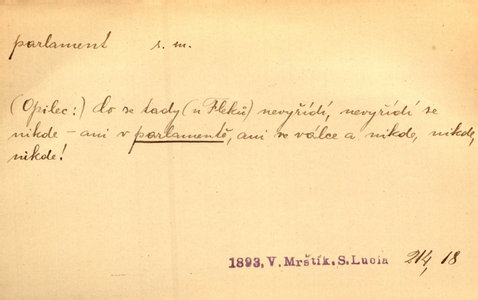 parlament s. m.
(Opilec:) Co se tady (u Fleků) nevyřídí, nevyřídí se
nikde – ani v parlamentě, ani ve válce a nikde, nikde,
nikde!
1893, V. Mrštík, S. Lucia 214, 18